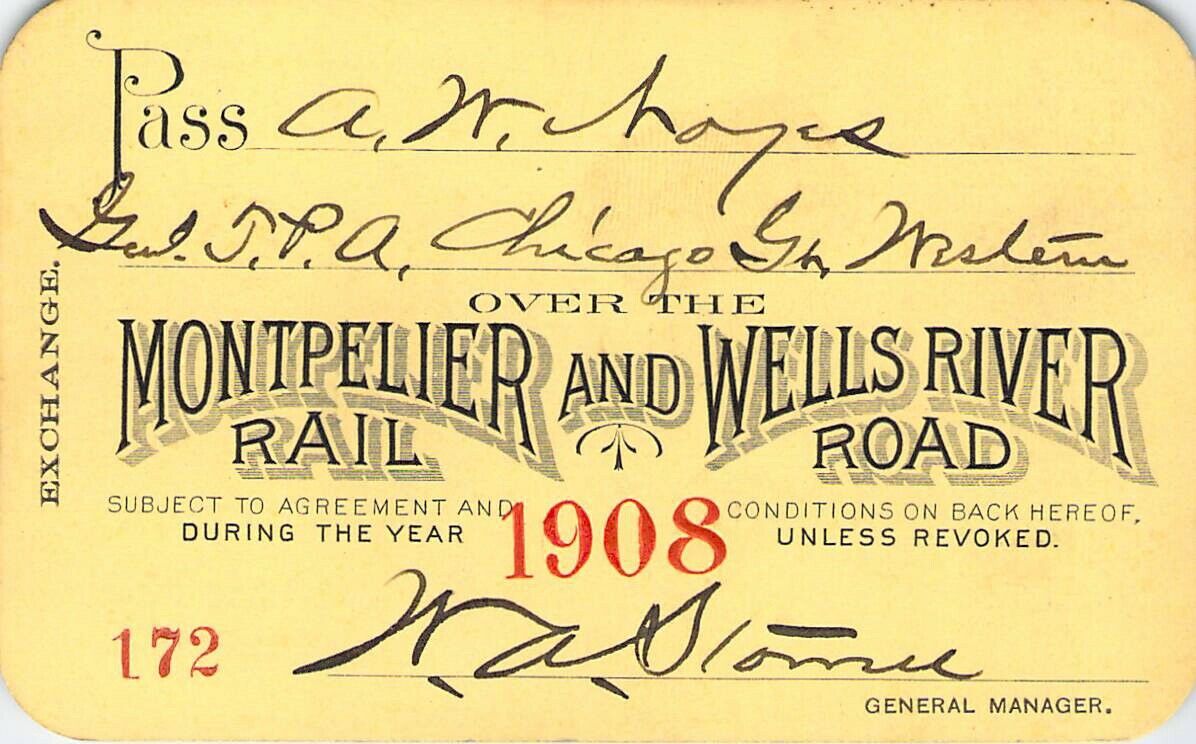 Pass A. W. Noyes
Genl. T. P. A. Chicago Gt. Western
OVER THE
MONTPELIER AND WELLS RIVER
RAIL ROAD
EXCHANGE.
SUBJECT TO AGREEMENT AND CONDITIONS ON BACK HEREOF,
DURING THE YEAR 1908 UNLESS REVOKED.
172
W. A. Stowell
GENERAL MANAGER.